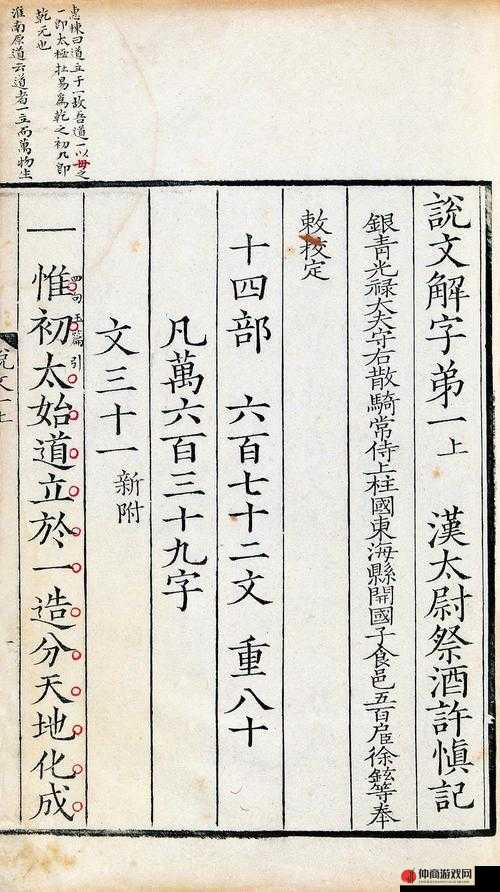 惠棟曰道立于一故吾道一以毌之
一即太極在易爲乾之初九即
乾元也
淮南原道云道者一立而萬物生
說文解字弟一上 漢太尉祭酒許愼記
銀青光禄大夫守右散騎常侍上柱國東海縣開國子食邑五百戶臣徐鉉等奉
敕校定
十四部 六百七十二文 重八十
凡萬六百三十九字
文三十一 新附
四句玉篇引
一 惟初太始道立於一造分天地化成
說文一上
仲商游戏网